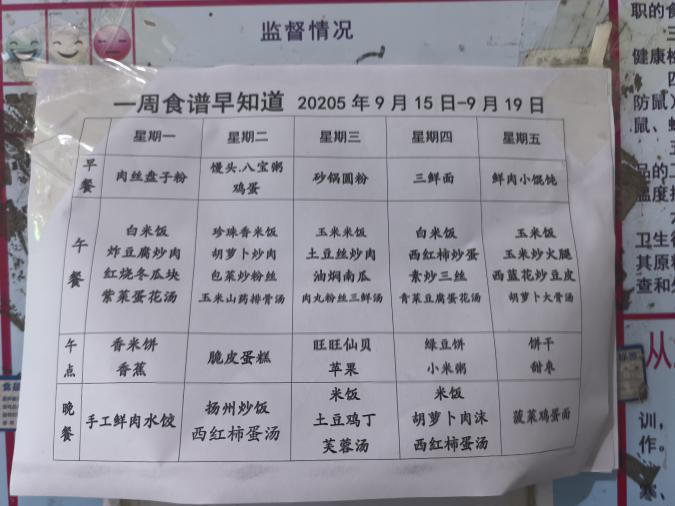 监督情况
职的食
健康检
防鼠
鼠、
品的工
温度
卫生
其原料
查和
从
训,
作。
寒、
一周食谱早知道 20205年9月15日-9月19日
星期一 星期二 星期三 星期四 星期五
早餐 肉丝盘子粉 馒头.八宝粥 砂锅圆粉 三鲜面 鲜肉小馄饨
鸡蛋
午餐 白米饭 珍珠香米饭 玉米米饭 白米饭 玉米饭
炸豆腐炒肉 胡萝卜炒肉 土豆丝炒肉 西红柿炒蛋 玉米炒火腿
红烧冬瓜块 包菜炒粉丝 油焖南瓜 素炒三丝 西蓝花炒豆皮
紫菜蛋花汤 玉米山药排骨汤 肉丸粉丝三鲜汤 青菜豆腐蛋花汤 胡萝卜大骨汤
午点 香米饼 脆皮蛋糕 旺旺仙贝 绿豆饼 饼干
香蕉 苹果 小米粥 甜枣
晚餐 手工鲜肉水饺 扬州炒饭 米饭 米饭 菠菜鸡蛋面
西红柿蛋汤 土豆鸡丁 胡萝卜肉沫
芙蓉汤 西红柿蛋汤